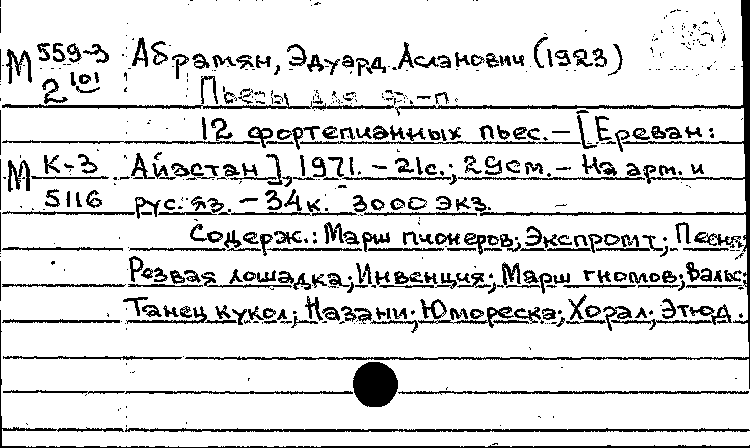 М 559-3 Абрамян, Эдуард Асланович (1923)
2 101 Пьесы для ф.-п.
12 фортепианных пьес. – [Ереван:
М К-3 Айастан], 1971. – 21с.; 29см. – На арм. и
5116 рус. яз. – 34к. 3000 экз.
Содерж.: Марш пионеров; Экспромт; Песня;
Резвая лошадка; Инвенция; Марш гномов; Вальс;
Танец кукол; Назани; Юмореска; Хорал; Этюд.